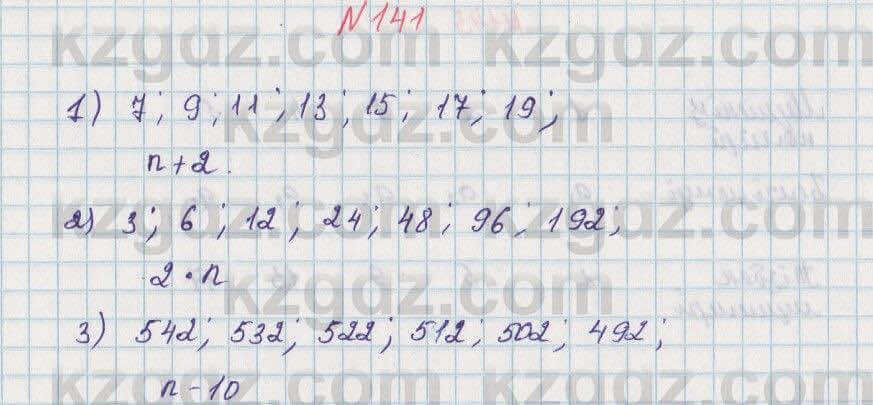 №141
kzgdz.com kzgdz.com
1) 7; 9; 11; 13; 15; 17; 19;
kzgdz.com
n+2.
2) 3; 6; 12; 24; 48; 96; 192;
kzgdz.com kzgdz.com
2·n
kzgdz.com
3) 542; 532; 522; 512; 502; 492;
n-10
kzgdz.com kzgdz.com